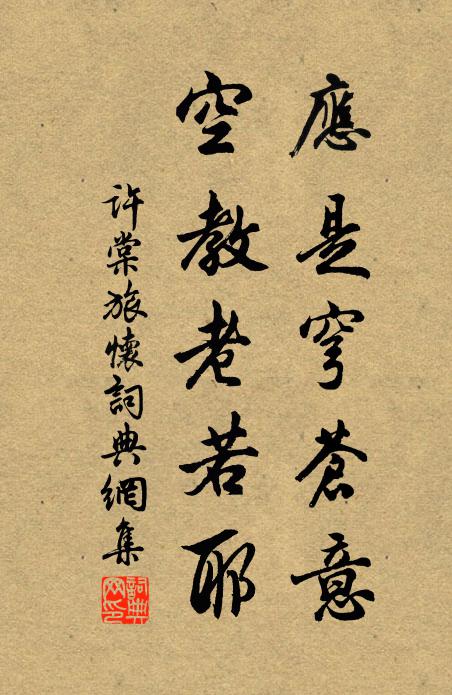 應是穹蒼意
空教老若耶
許棠旅懷詞典網集
詞典网印